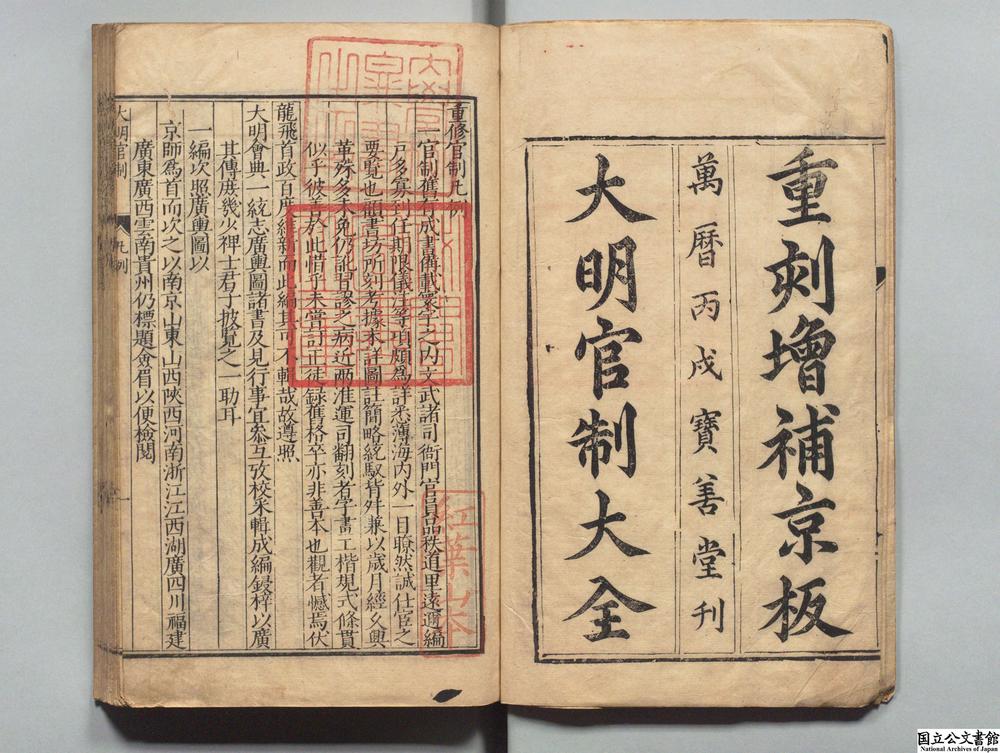 重刻增補京板
萬曆丙戌寶善堂刊
大明官制大全
重修官制凡例
一官制舊有成書備載寰宇之內文武諸司衙門官員品秩道里遠邇編
戶多寡到任期限儀注等項頗為詳悉薄海內外一目瞭然誠仕宦之
要覽也顧書坊所刻考據未詳圖註簡略紕馭皆舛兼以歲月經久興
革殊多未免仍訛習謬之病近兩淮運司翻刻者字畫工楷規式條貫
似乎彼善於此惜乎未嘗訂正徒録舊格卒亦非善本也觀者憾焉伏
龍飛首政百度維新而此編其可不輯哉故遵照
大明會典一統志廣輿圖諸書及見行事宜叅互攷校采輯成編鋟梓以廣
其傳庶幾少裨士君子披覽之一助耳
一編次照廣輿圖以
京師為首而次之以南京山東山西陝西河南浙江江西湖廣四川福建
廣東廣西雲南貴州仍標題僉眉以便檢閱
大明官制
凡例
一
紅葉山本
国立公文書館
National Archives of Japan